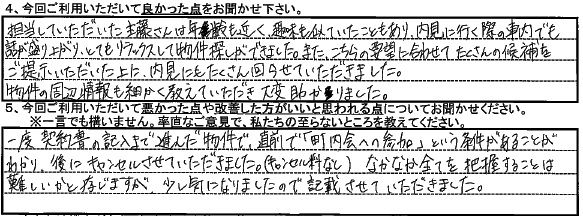 4、今回ご利用いただいて良かった点をお聞かせ下さい。
担当していただいた主藤さんは年齢も近く、趣味も似ていたこともあり、内見に行く際の車内でも
話が盛り上がり、とてもリラックスして物件探しができました。また、こちらの要望に合わせてたくさんの候補を
ご提示いただいた上に、内見にもたくさん回らせていただきました。
物件の周辺情報も細かく教えていただき大変助かりました。
5、今回ご利用いただいて悪かった点や改善した方がいいと思われる点についてお聞かせください。
※一言でも構いません。率直なご意見で、私たちの至らないところを教えてください。
一度契約書の記入まで進んだ物件で、直前で「町内会への参加」という条件があることが
わかり、後にキャンセルさせていただきました。(キャンセル料なし)なかなか全てを把握することは
難しいかと存じますが、少し気になりましたので記載させていただきました。